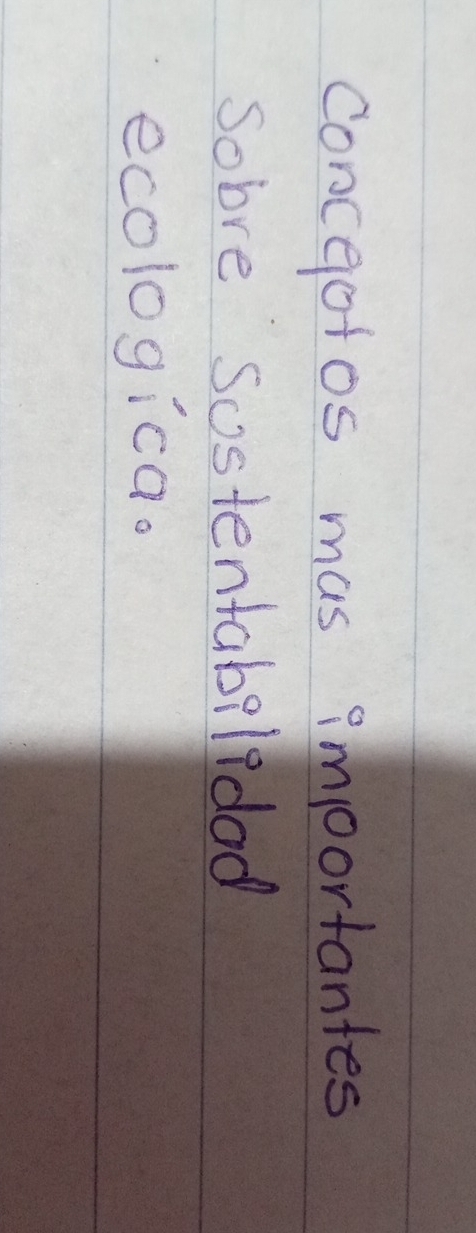 Conceptos mas importantes
Sobre Sustentabilidad
ecologíca.